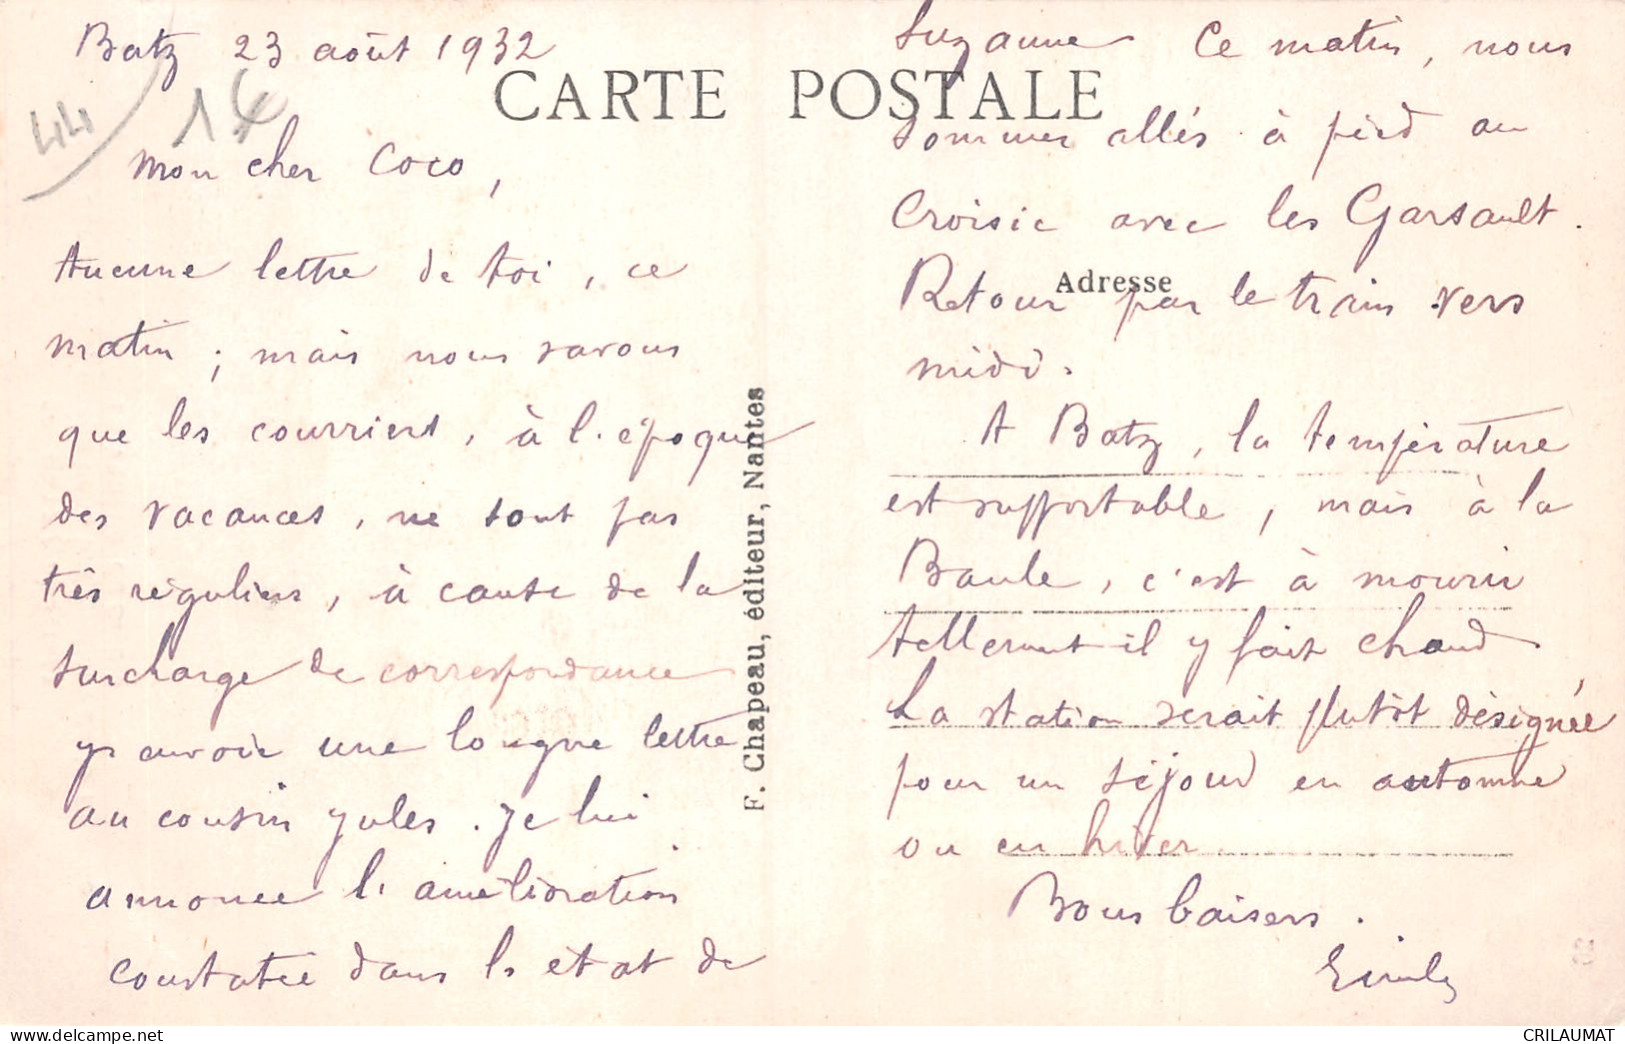 Batz 23 août 1932
44
1€
CARTE POSTALE
Mon cher Coco,
Aucune lettre de toi, ce
matin; mais nous savons
que les courriers, à l'époque
des vacances, ne sont pas
très réguliers, à cause de la
surcharge de correspondance
J'envoie une longue lettre
au cousin Jules. Je lui
annonce l'amélioration
constatée dans l'état de
F. Chapeau, éditeur, Nantes
Suzanne Ce matin, nous
sommes allés à pied au
Croisic avec les Garsault.
Adresse
Retour par le train vers
midi.
A Batz, la température
est supportable, mais à la
Baule, c'est à mourir
tellement il y fait chaud
La station serait plutôt désignée
pour un séjour en automne
ou en hiver.
Bons baisers.
CRILAUMAT